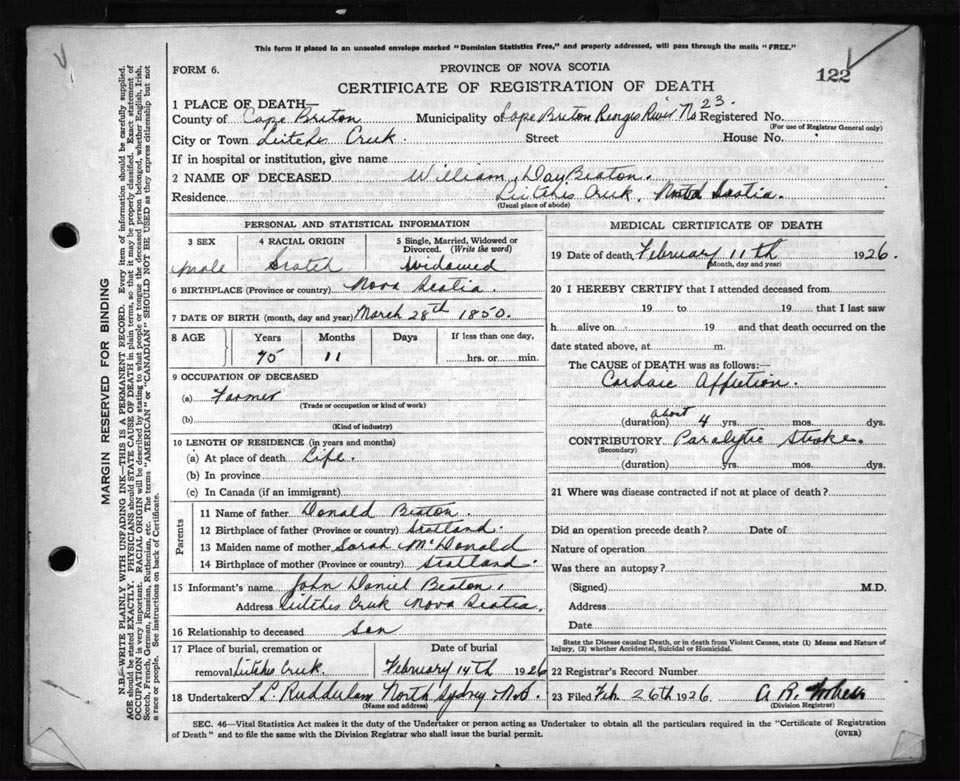 This form if placed in an unsealed envelope marked "Dominion Statistics Free," and properly addressed, will pass through the mails "FREE."
FORM 6.
PROVINCE OF NOVA SCOTIA
122
CERTIFICATE OF REGISTRATION OF DEATH
1 PLACE OF DEATH—
County of Cape Breton Municipality of Cape Breton Georges River No 23. Registered No.
(For use of Registrar General only)
City or Town Leitches Creek. Street House No.
If in hospital or institution, give name
2 NAME OF DECEASED William Day Beaton.
Residence Leitches Creek, Nova Scotia.
(Usual place of abode)
PERSONAL AND STATISTICAL INFORMATION
3 SEX 4 RACIAL ORIGIN 5 Single, Married, Widowed or Divorced. (Write the word)
Male Scotch Widowed
6 BIRTHPLACE (Province or country) Nova Scotia.
7 DATE OF BIRTH (month, day and year) March 28th 1850.
8 AGE Years Months Days If less than one day,
75 11 hrs. or min.
9 OCCUPATION OF DECEASED
(a) Farmer
(Trade or occupation or kind of work)
(b)
(Kind of industry)
10 LENGTH OF RESIDENCE (in years and months)
(a) At place of death Life.
(b) In province
(c) In Canada (if an immigrant)
Parents
11 Name of father Donald Beaton.
12 Birthplace of father (Province or country) Scotland.
13 Maiden name of mother Sarah McDonald
14 Birthplace of mother (Province or country) Scotland.
15 Informant's name John Daniel Beaton.
Address Leitches Creek Nova Scotia.
16 Relationship to deceased Son
17 Place of burial, cremation or removal Leitches Creek. Date of burial February 14th 1926
18 Undertaker North Sydney
(Name and address)
MEDICAL CERTIFICATE OF DEATH
19 Date of death, February 11th 1926.
(Month, day and year)
20 I HEREBY CERTIFY that I attended deceased from
19 to 19 that I last saw
h alive on 19 and that death occurred on the
date stated above, at m.
The CAUSE OF DEATH was as follows:—
Cardaic Affection.
(duration) about 4 yrs. mos. dys.
CONTRIBUTORY Paralytic Stroke.
(Secondary)
(duration) yrs. mos. dys.
21 Where was disease contracted if not at place of death?
Did an operation precede death? Date of
Nature of operation
Was there an autopsy?
(Signed) M.D.
Address
Date
State the Disease causing Death, or in death from Violent Causes, state (1) Means and Nature of Injury, (2) whether Accidental, Suicidal or Homicidal.
22 Registrar's Record Number
23 Filed Feb. 26th 1926 A. R.
(Division Registrar)
SEC. 46—Vital Statistics Act makes it the duty of the Undertaker or person acting as Undertaker to obtain all the particulars required in the "Certificate of Registration
of Death" and to file the same with the Division Registrar who shall issue the burial permit.
(OVER)
MARGIN RESERVED FOR BINDING
N.B.—WRITE PLAINLY WITH UNFADING INK—THIS IS A PERMANENT RECORD. Every item of information should be carefully supplied.
AGE should be stated EXACTLY. PHYSICIANS should STATE CAUSE OF DEATH in plain terms, so that it may be properly classified. Exact statement of
OCCUPATION is very important. RACIAL ORIGIN will be described by stating to what people or tongue the deceased person belonged, whether English, Irish,
Scotch, French, German, Russian, Ruthenian, etc. The terms "AMERICAN" or "CANADIAN" SHOULD NOT BE USED as they express citizenship but not
a race or people. See instructions on back of Certificate.